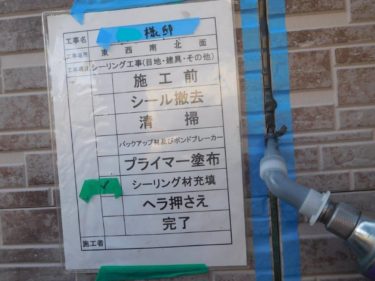 工事名 様邸
東西南北面
シーリング工事(目地・建具・その他)
施工前
シール撤去
清掃
バックアップ材及びボンドブレーカー
プライマー塗布
✓ シーリング材充填
ヘラ押さえ
完了
施工者